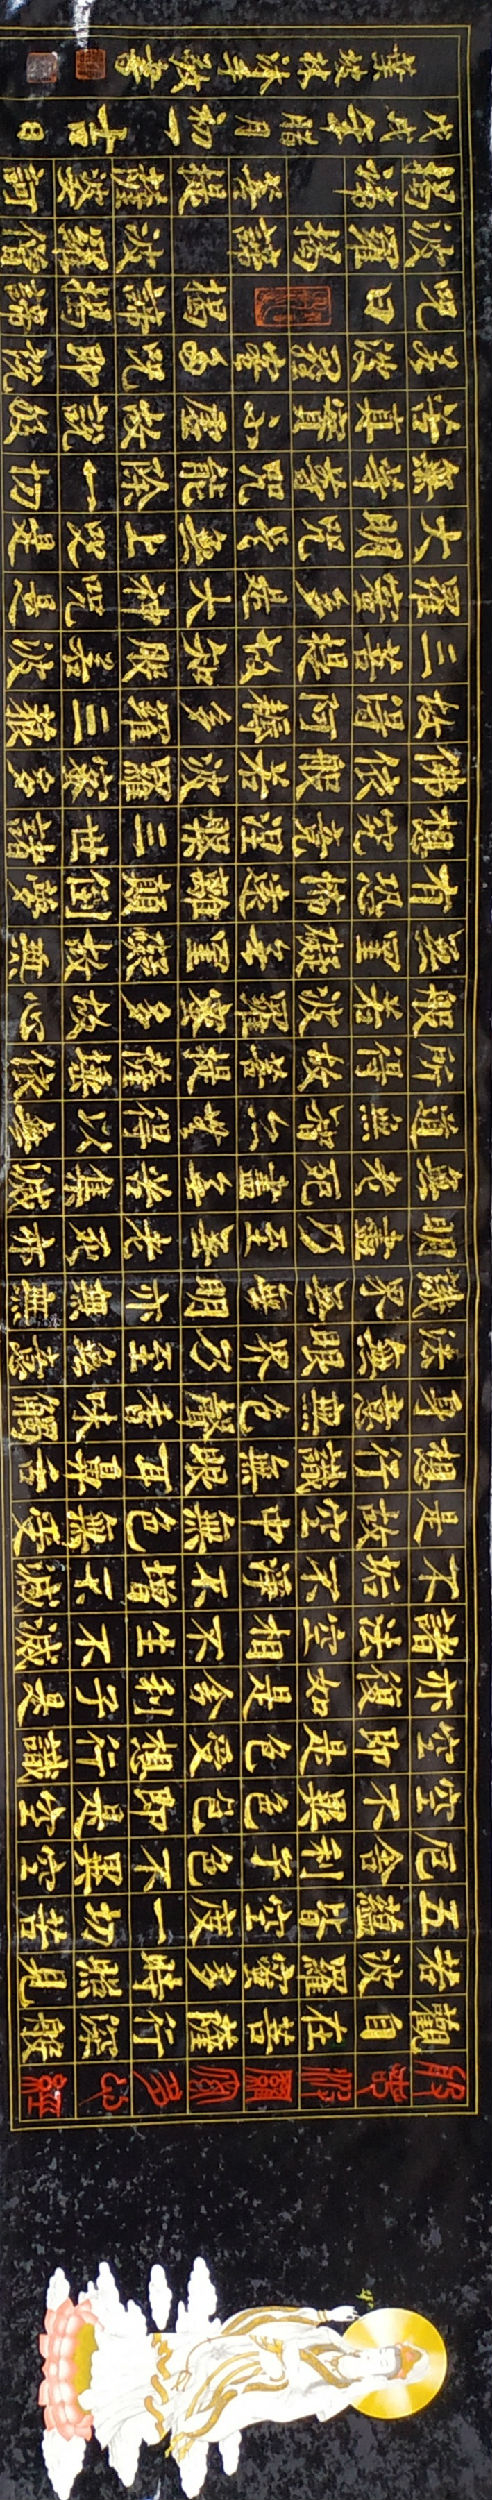 般若波羅蜜多心經
觀自在菩薩行深般
若波羅蜜多時照見
五蘊皆空度一切苦
厄舍利子色不異空
空不異色色即是空
空即是色受想行識
亦復如是舍利子是
諸法空相不生不滅
不垢不淨不增不減
是故空中無色無受
想行識無眼耳鼻舌
身意無色聲香味觸
法無眼界乃至無意
識界無無明亦無無
明盡乃至無老死亦
無老死盡無苦集滅
道無智亦無得以無
所得故菩提薩埵依
般若波羅蜜多故心
無罣礙無罣礙故無
有恐怖遠離顛倒夢
想究竟涅槃三世諸
佛依般若波羅蜜多
故得阿耨多羅三藐
三菩提故知般若波
羅蜜多是大神咒是
大明咒是無上咒是
無等等咒能除一切
苦真實不虛故說般
若波羅密多咒即說
咒曰 揭諦揭諦
波羅揭諦 波羅僧
揭諦 菩提薩婆訶
戊戌年腊月初一吉日
葉波林沐手敬書